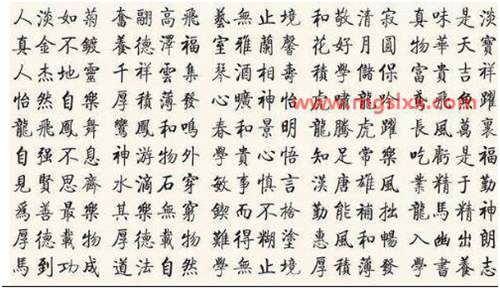 人淡如菊 奮翮高飛 藝無止境 和敬清寂 真味是淡
真金不鍍 養德澤福 室雅蘭馨 花好月圓 物華天寶
人杰地靈 千祥雲集 琴酒相壽 積學儲保 富貴吉祥
怡然自樂 厚積薄發 心曠神怡 嘯 飛魚躍
龍飛鳳舞 鸞鳳和鳴 春和景明 龍騰虎躍 長風萬裏
自强不息 神游物外 學貴心悟 知足常樂 吃虧是福
見賢思齊 水滴石穿 敏事慎言 漢唐雄風 業精于勤
爲善最樂 其樂無窮 鍥而不捨 勤能補拙 龍馬精神
厚德載物 厚德載物 難得糊塗 惠風和暢 入幽出朗
馬到功成 道法自然 學無止境 厚積薄發 學書養志